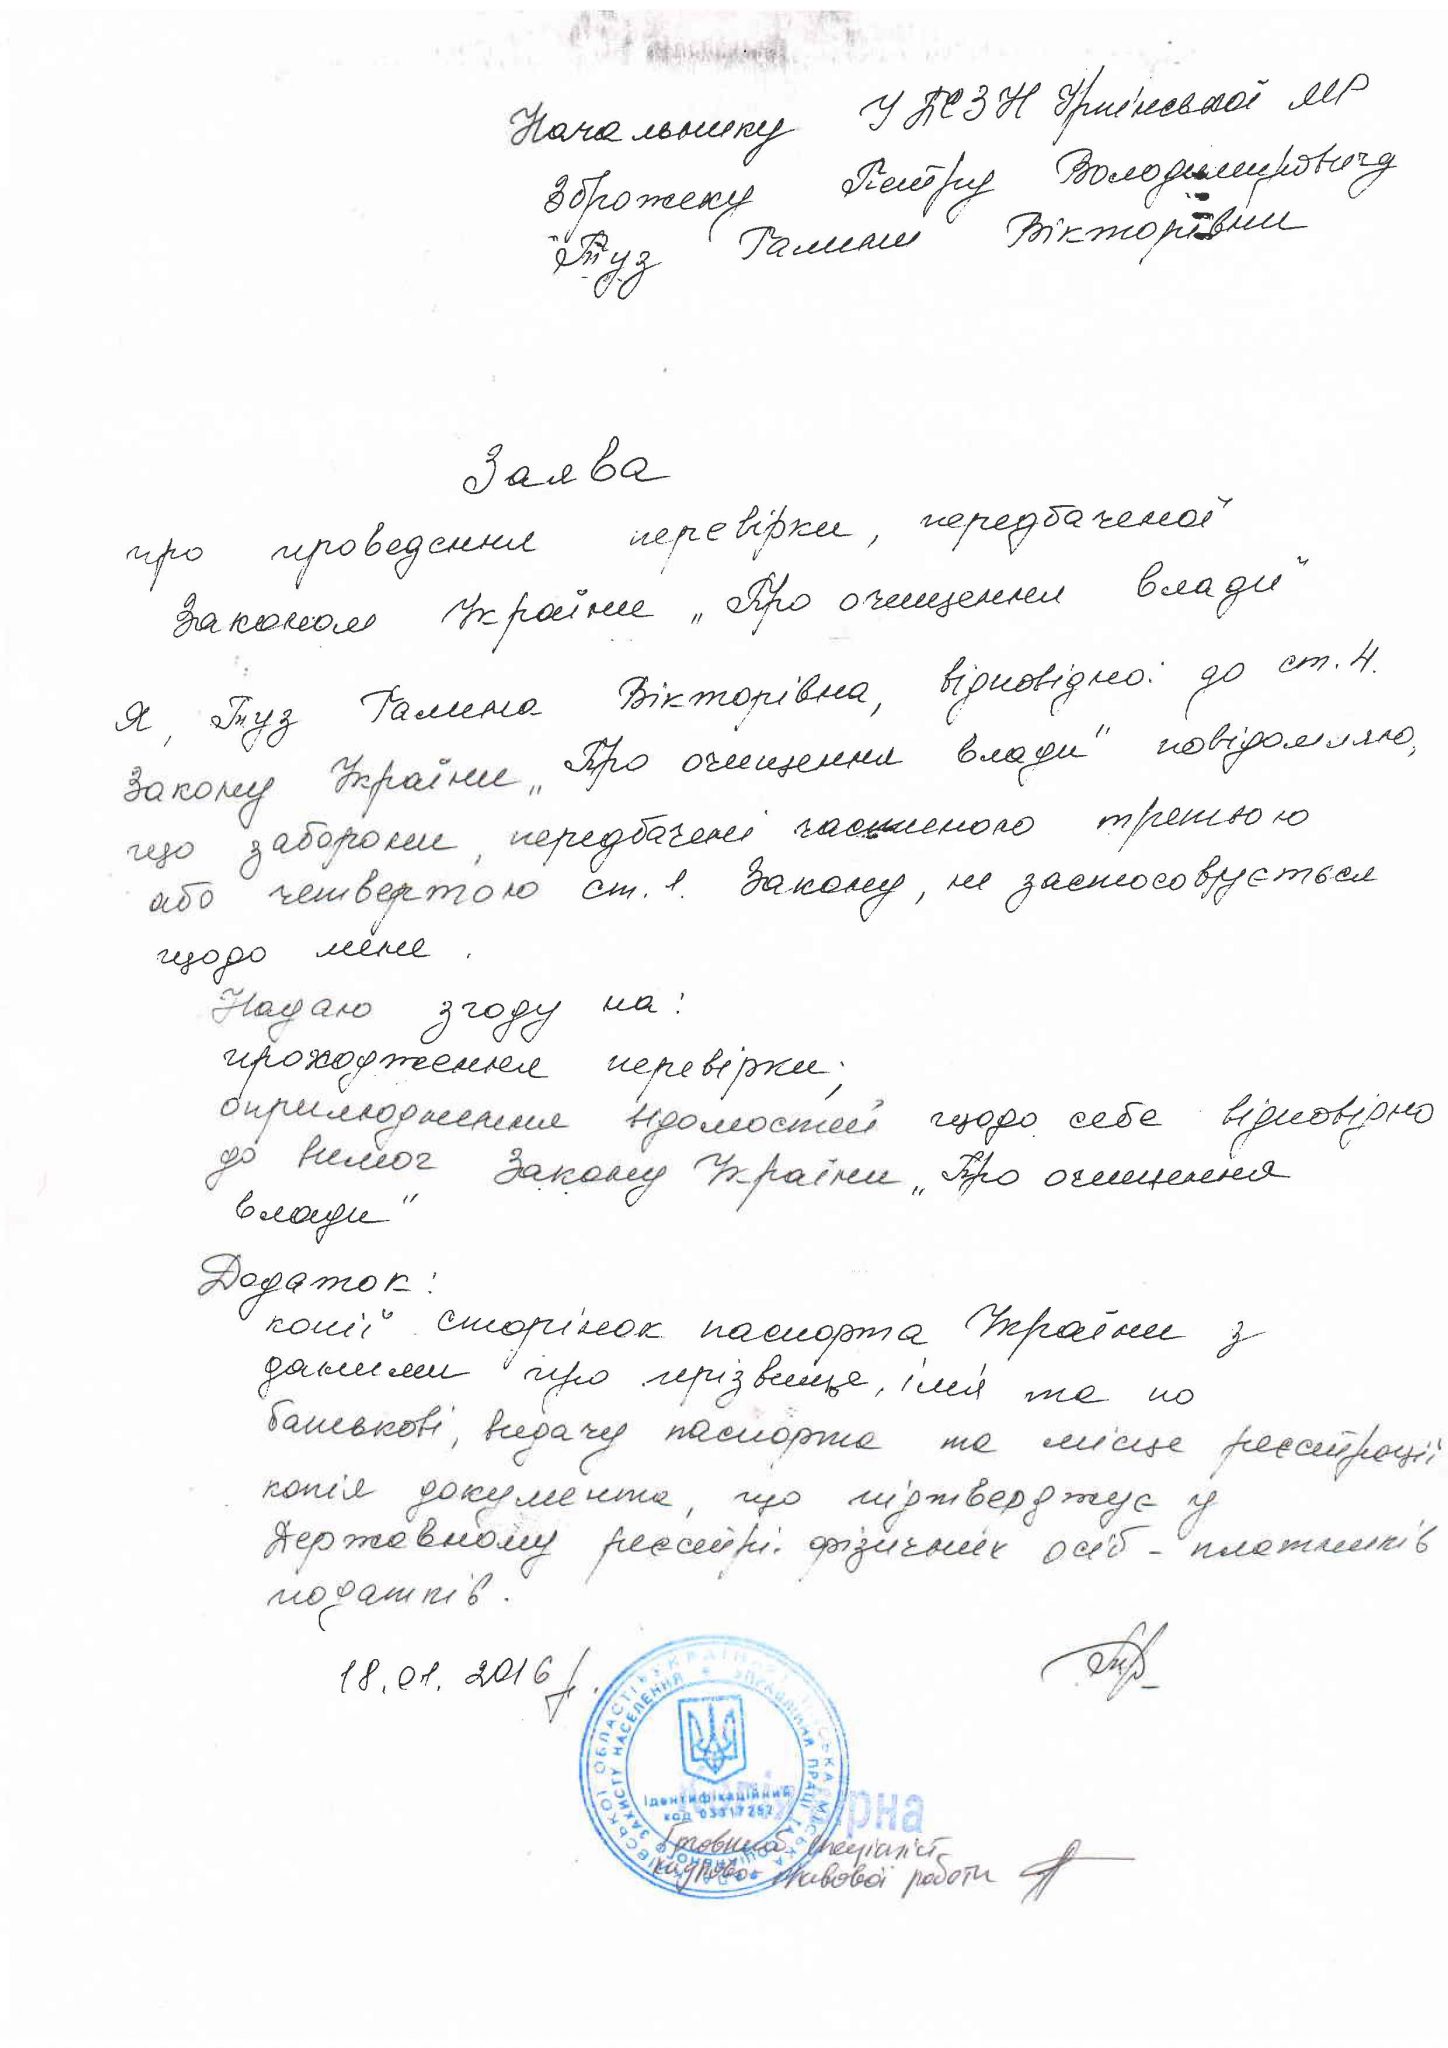 Начальнику УПСЗН Ірпінської МР
Зброжеку Петру Володимировичу
Туз Галини Вікторівни
Заява
про проведення перевірки, передбаченої
Законом України „Про очищення влади"
Я, Туз Галина Вікторівна, відповідно до ст. 4.
Закону України „Про очищення влади" повідомляю,
що заборони, передбачені частиною третьою
або четвертою ст. 1. Закону, не застосовується
щодо мене.
Надаю згоду на:
проходження перевірки;
оприлюднення відомостей щодо себе відповідно
до вимог Закону України „Про очищення
влади"
Додаток:
копії сторінок паспорта України з
даними про прізвище, ім'я та по
батькові, видачу паспорта та місце реєстрації
копія документа, що підтверджує у
Державному реєстрі фізичних осіб - платників
податків.
18.01.2016 р.
Ідентифікаційний
код 03317252
вірна
Головний спеціаліст
кадрово-правової роботи